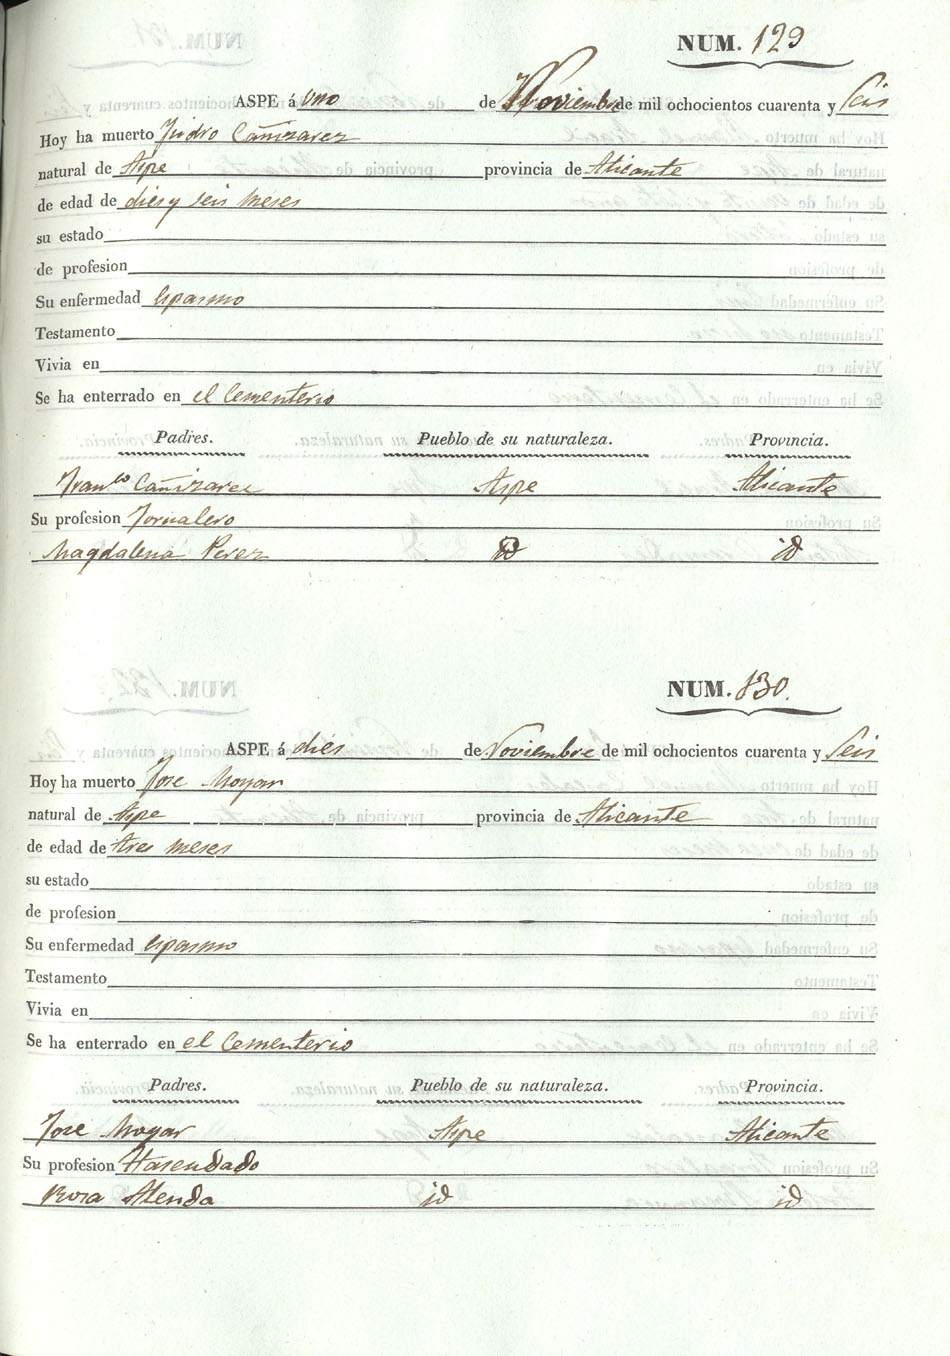 NUM. 129
ASPE á uno de Noviembre de mil ochocientos cuarenta y Seis
Hoy ha muerto Isidro Cañizarez
natural de Aspe provincia de Alicante
de edad de dies y seis meses
su estado
de profesion
Su enfermedad Espasmo
Testamento
Vivia en
Se ha enterrado en el Cementerio
Padres. Pueblo de su naturaleza. Provincia.
Franco Cañizarez Aspe Alicante
Su profesion Jornalero
Magdalena Perez id id
NUM. 130.
ASPE á dies de Noviembre de mil ochocientos cuarenta y Seis
Hoy ha muerto Jose Moyar
natural de Aspe provincia de Alicante
de edad de tres meses
su estado
de profesion
Su enfermedad Espasmo
Testamento
Vivia en
Se ha enterrado en el Cementerio
Padres. Pueblo de su naturaleza. Provincia.
Jose Moyar Aspe Alicante
Su profesion Hasendado
Rosa Atenda id id